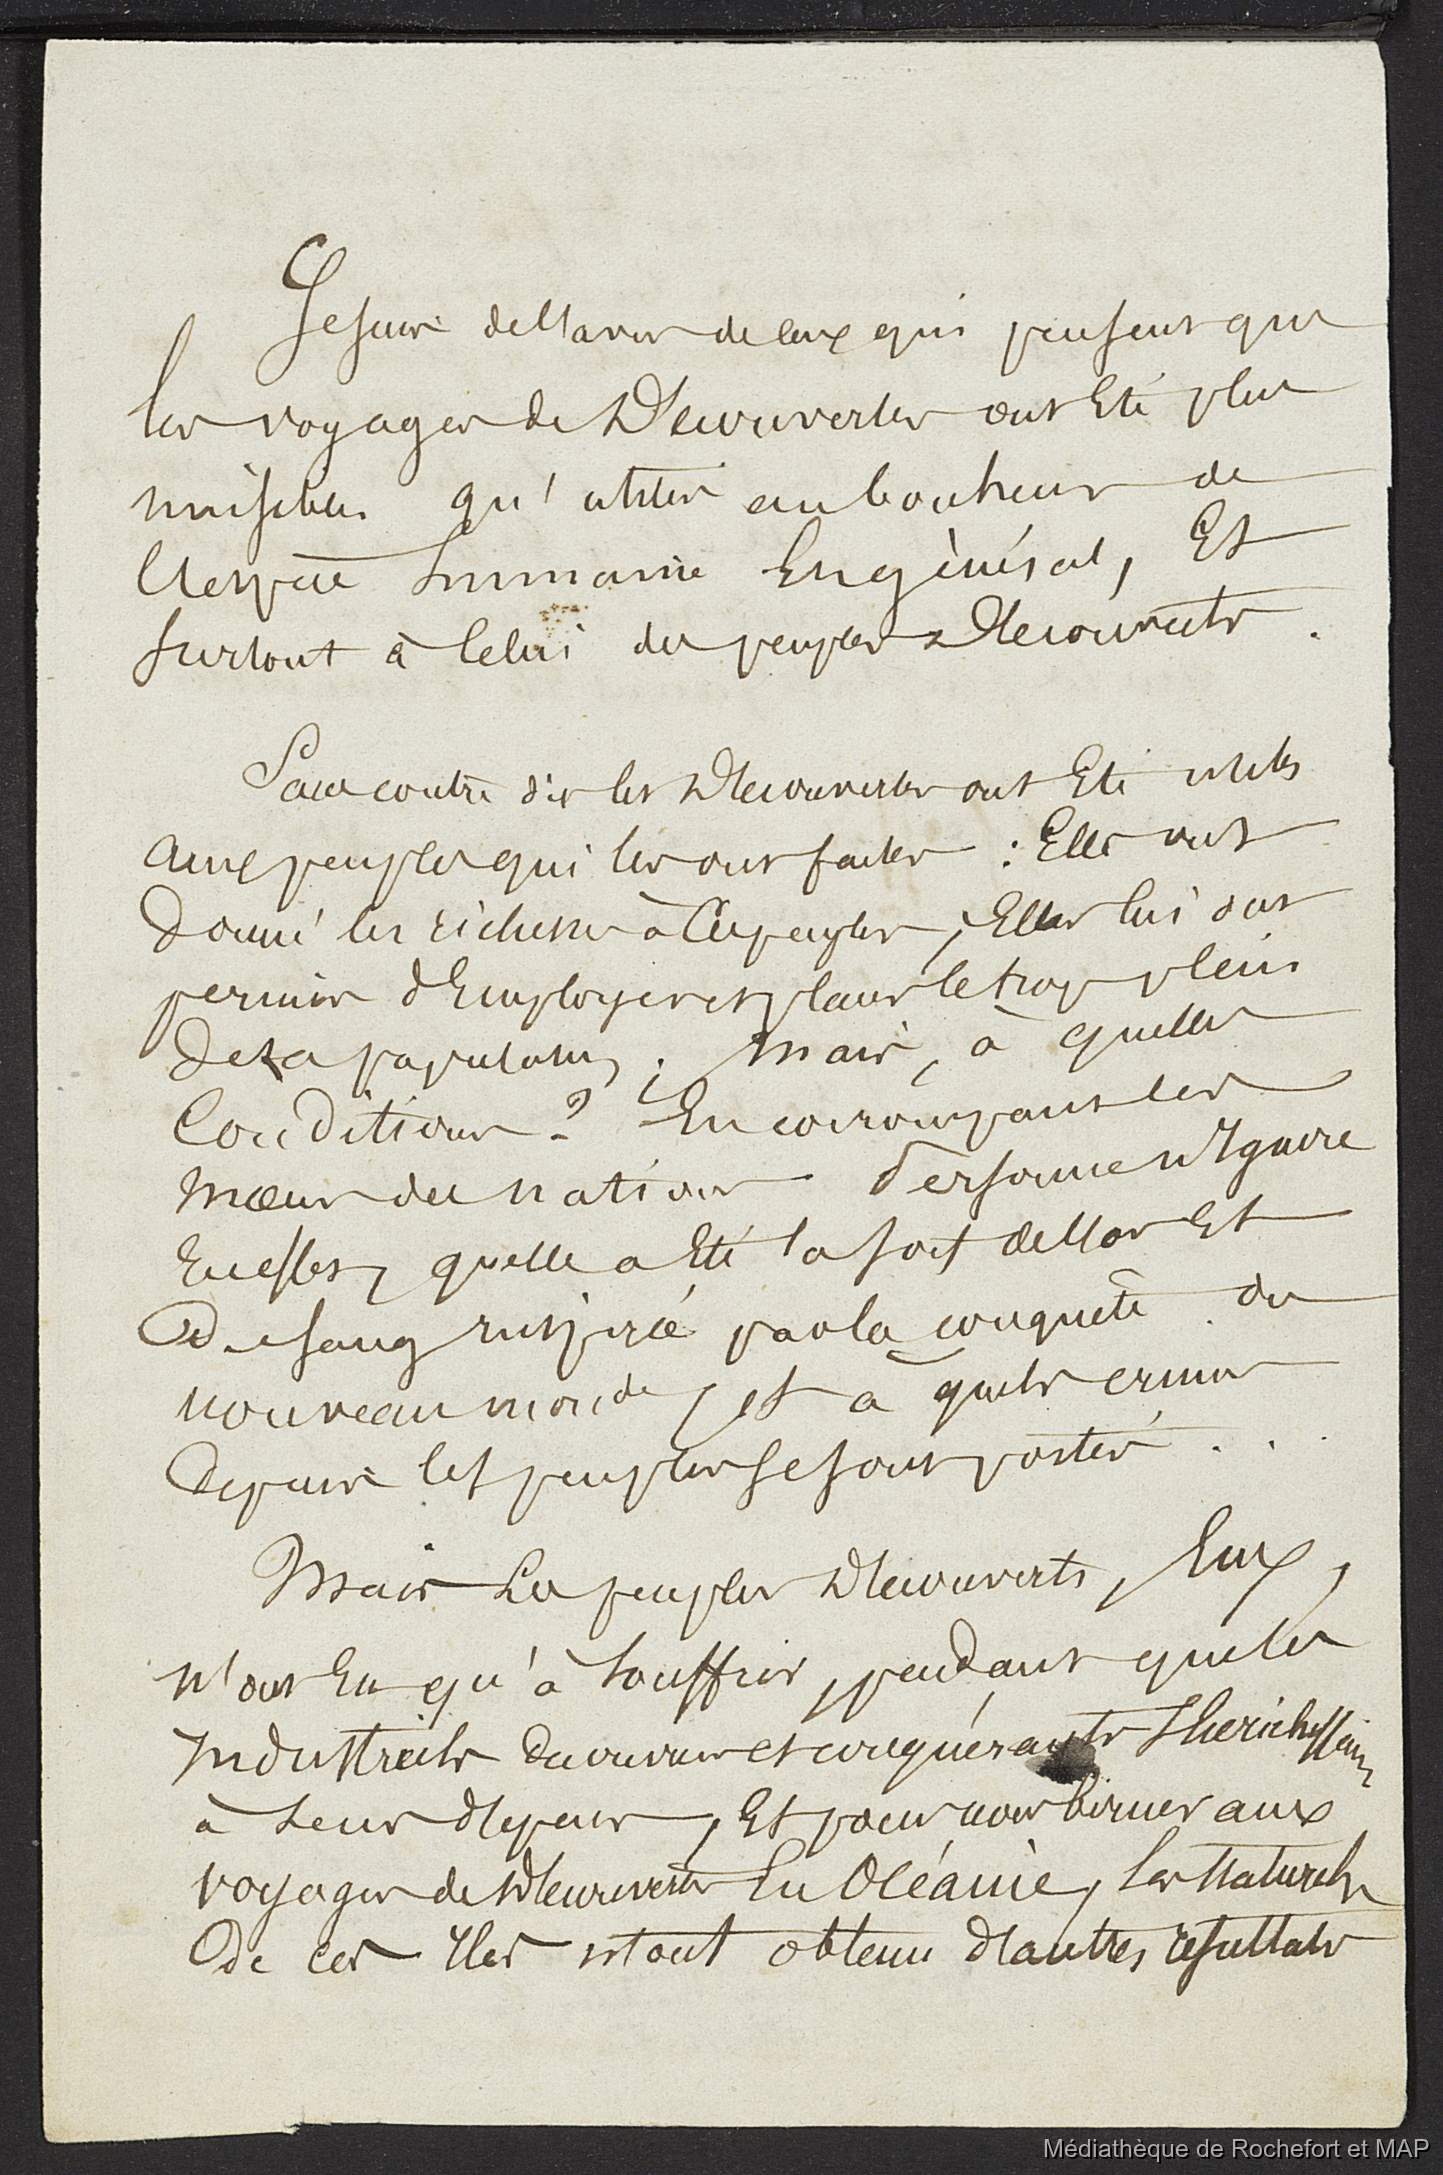 Je suis de l'avis de ceux qui pensent que
les voyages de Découvertes ont Eté plus
nuisibles qu'utiles au bonheur de
l'espèce humaine En général, Et
surtout à celui des peuples Découverts.
Sans contre dis les Découvertes ont Eté utiles
aux peuples qui les ont faites : Elles ont
donné les richesses à ces peuples, Elles lui ont
permis d'Employer et placer le trop plein
de sa population ; mais, à quelles
Conditions ? En corrompant les
mœurs des nations. Personne n'Ignore
En effet, quelle a Eté la soif de l'or Et
De sang inspirée par la conquête du
nouveau monde, et à quels crimes
Depuis les peuples se sont portés . . .
Mais Les peuples Découverts, Eux,
n'ont Eu qu'à souffrir, pendant que les
Industriels et conquérants s'Enrichissaient
à Leurs dépens, Et pour nous borner aux
voyages de Découvertes En Océanie, Les Naturels
De ces Iles n'ont obtenu d'autres résultats
Médiathèque de Rochefort et MAP